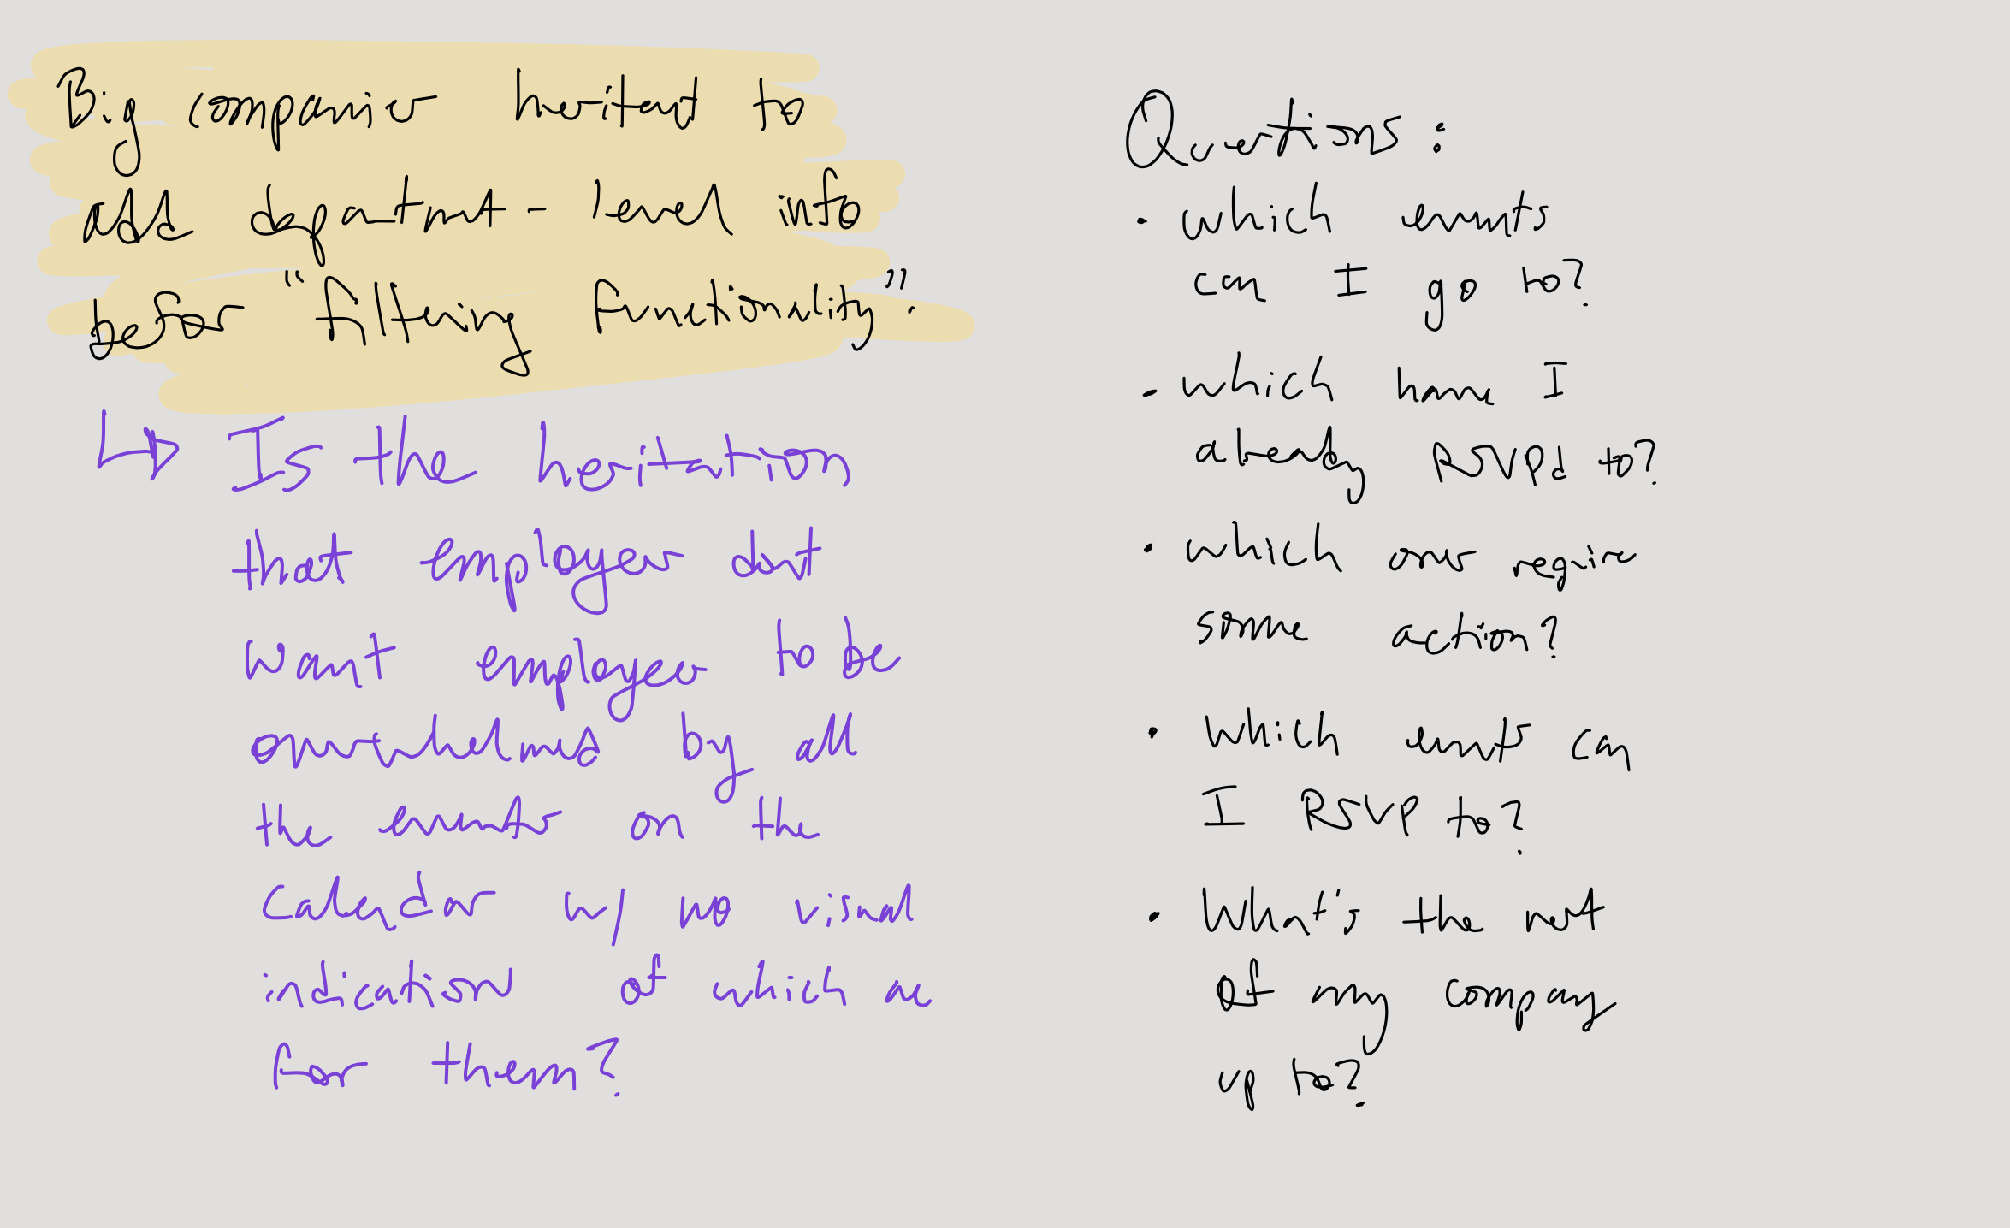 Big companies hesitant to
add department-level info
before "filtering functionality".
↳ Is the hesitation
that employers don't
want employees to be
overwhelmed by all
the events on the
calendar w/ no visual
indication of which are
for them?
Questions:
• which events
can I go to?
• which have I
already RSVPd to?
• which ones require
some action?
• which events can
I RSVP to?
• What's the rest
of my company
up to?